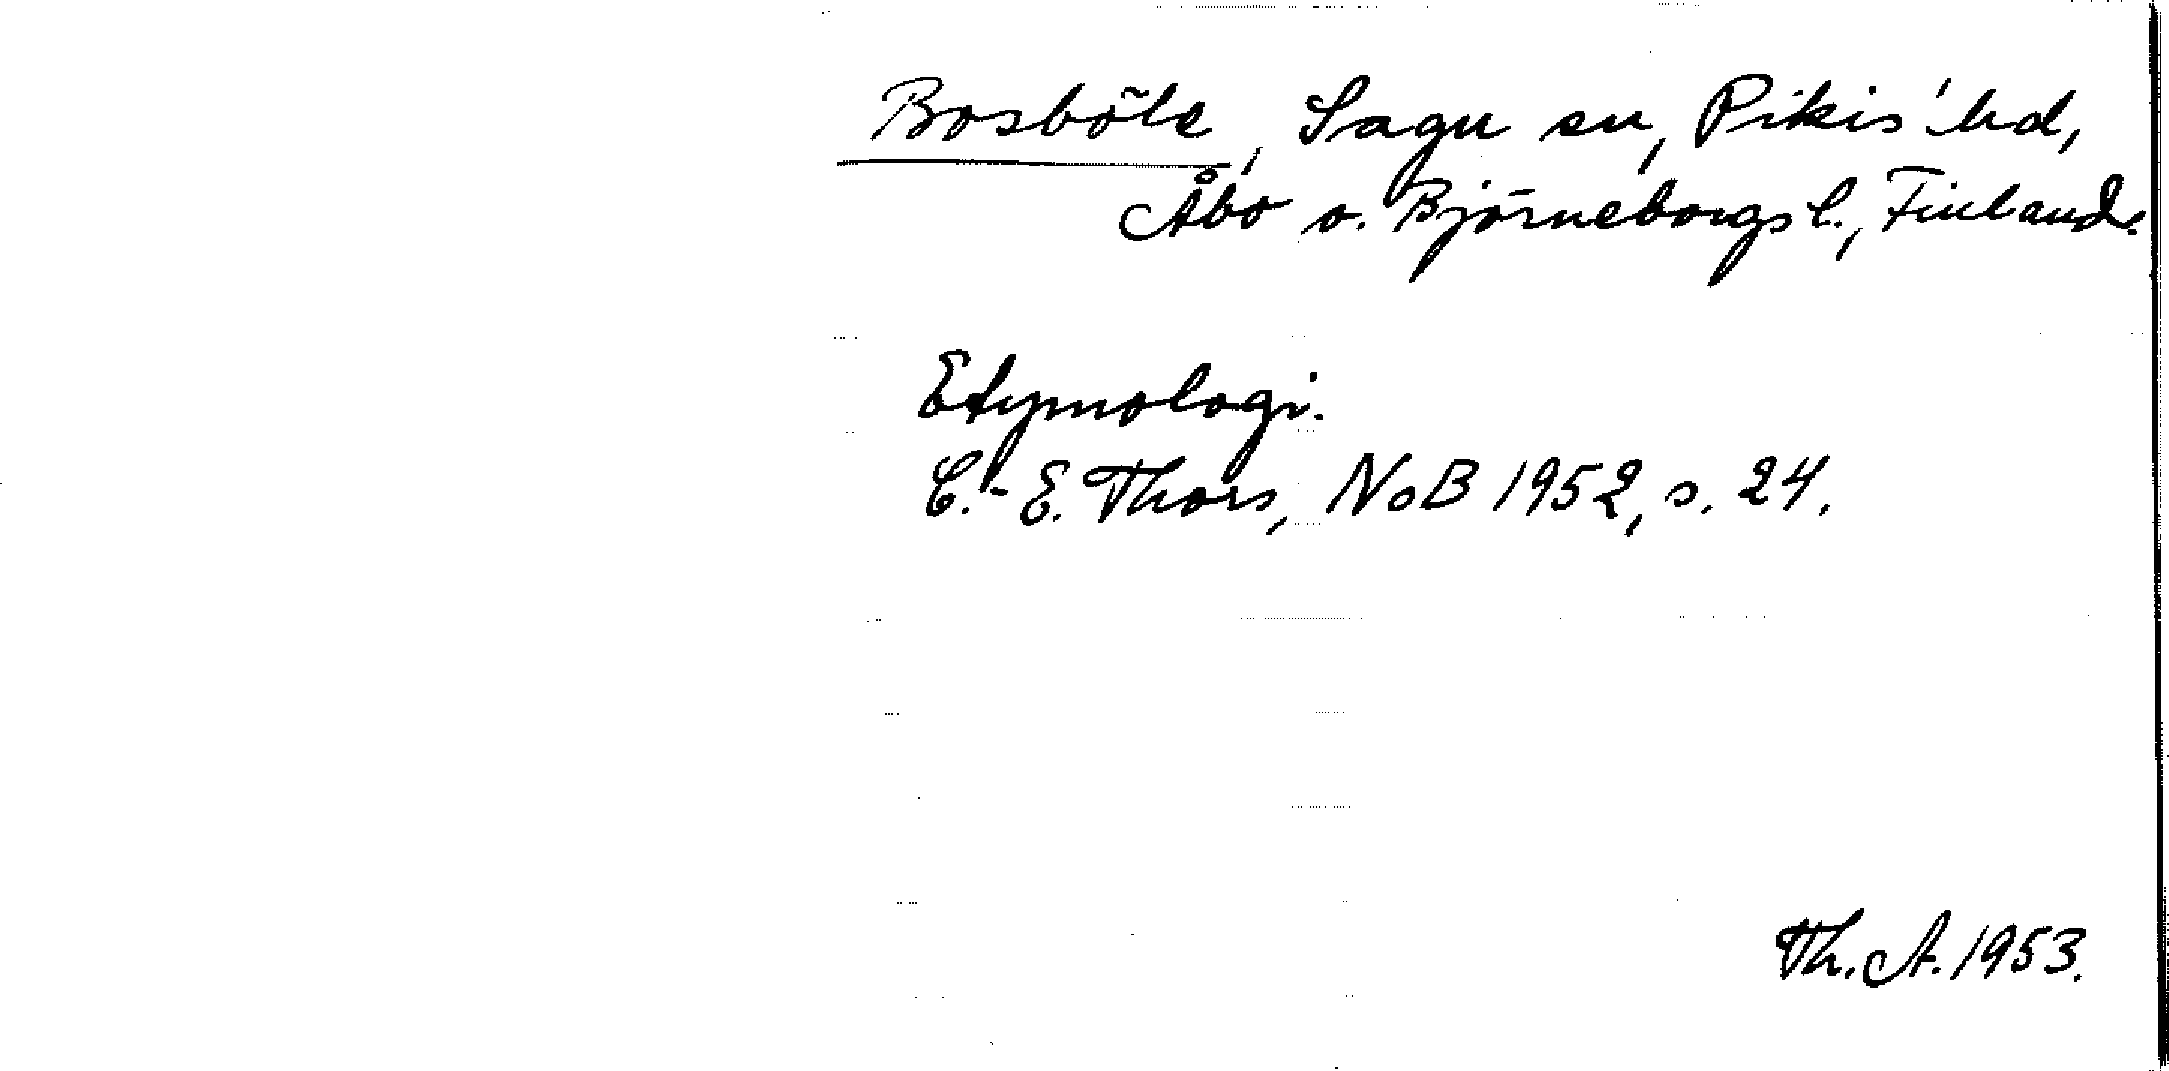 Bosböle, Sagu sn, Pikis hd,
Åbo o. Björneborgs l., Finland.
Etymologi.
C.-E. Thors, NoB 1952, s. 24.
Th. A. 1953.